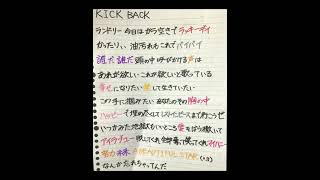 KICK BACK
ランドリー今日はガラ空きでラッキーデイ
かったりい 油汚れもこれでバイバイ
誰だ誰だ頭の中 呼びかける声は
あれが欲しいこれが欲しいと歌っている
幸せになりたい 楽して生きていたい
この手に掴みたい あなたのその胸の中
ハッピーで埋めつくして レストインピースまで行こうぜ
いつかみた地獄もいいところ 愛をばら撒いて
アイラブユー貶してくれ全部奪って笑ってくれマイハニー
努力 未来 A BEAUTIFUL STAR
なんか忘れちゃってんだ